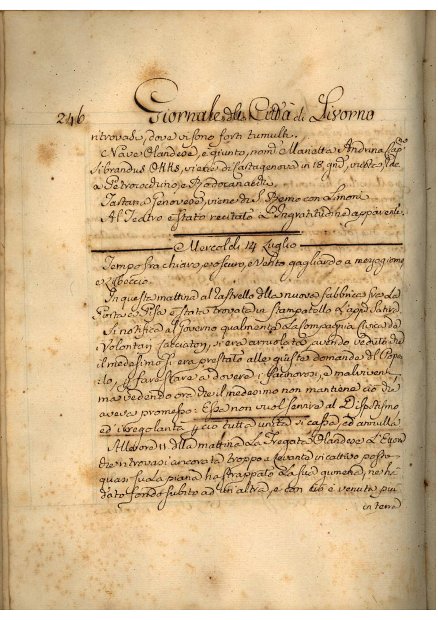 246 Giornale della Città di Livorno
ritrovasi, dove vi sono forti tumulti.
Nave Olandese, è giunto, nom.ª Marietta Andrina Cap.º
Sibrandus viene di Cartagenova in 18 gni,
a e Bodocanachi
Tartana Genovese, viene di S. Remo con Limoni
Al Teatro è stato recitato L'Ingratitudine apparente.
Mercoldì 14 Luglio
Tempo fra chiaro, e oscuro, e Vento gagliardo a mezzogiorno
e Libeccio.
In questa mattina al Rastrello della nuova fabbrica fra La
Porta a Pisa è stata trovata in stampatello L'app.ª Satira
Si notifica al Governo qualmente La Compagnia Civica de
Volontari Cacciatori, si era arruolata, avendo veduto che
il medesimo si era prestato alle giuste domande del Popo-
lo, fare stare a dovere i facinorosi, e malviventi,
ma vedendo ora che il medesimo non mantiene ciò che
aveva promesso: Essa non vuol servire al Dispotismo
ed irregolarità p ciò tutta unita si cassa, ed annulla
Alle ore 11 della mattina La Fregata Olandese
che ritrovasi ancorata troppo a Levante in cattivo posto
quasi sulla piana ha strappato La sua gumena, ne ha
dato fondo subito ad un'altra, e con ciò è venuta più
in terra